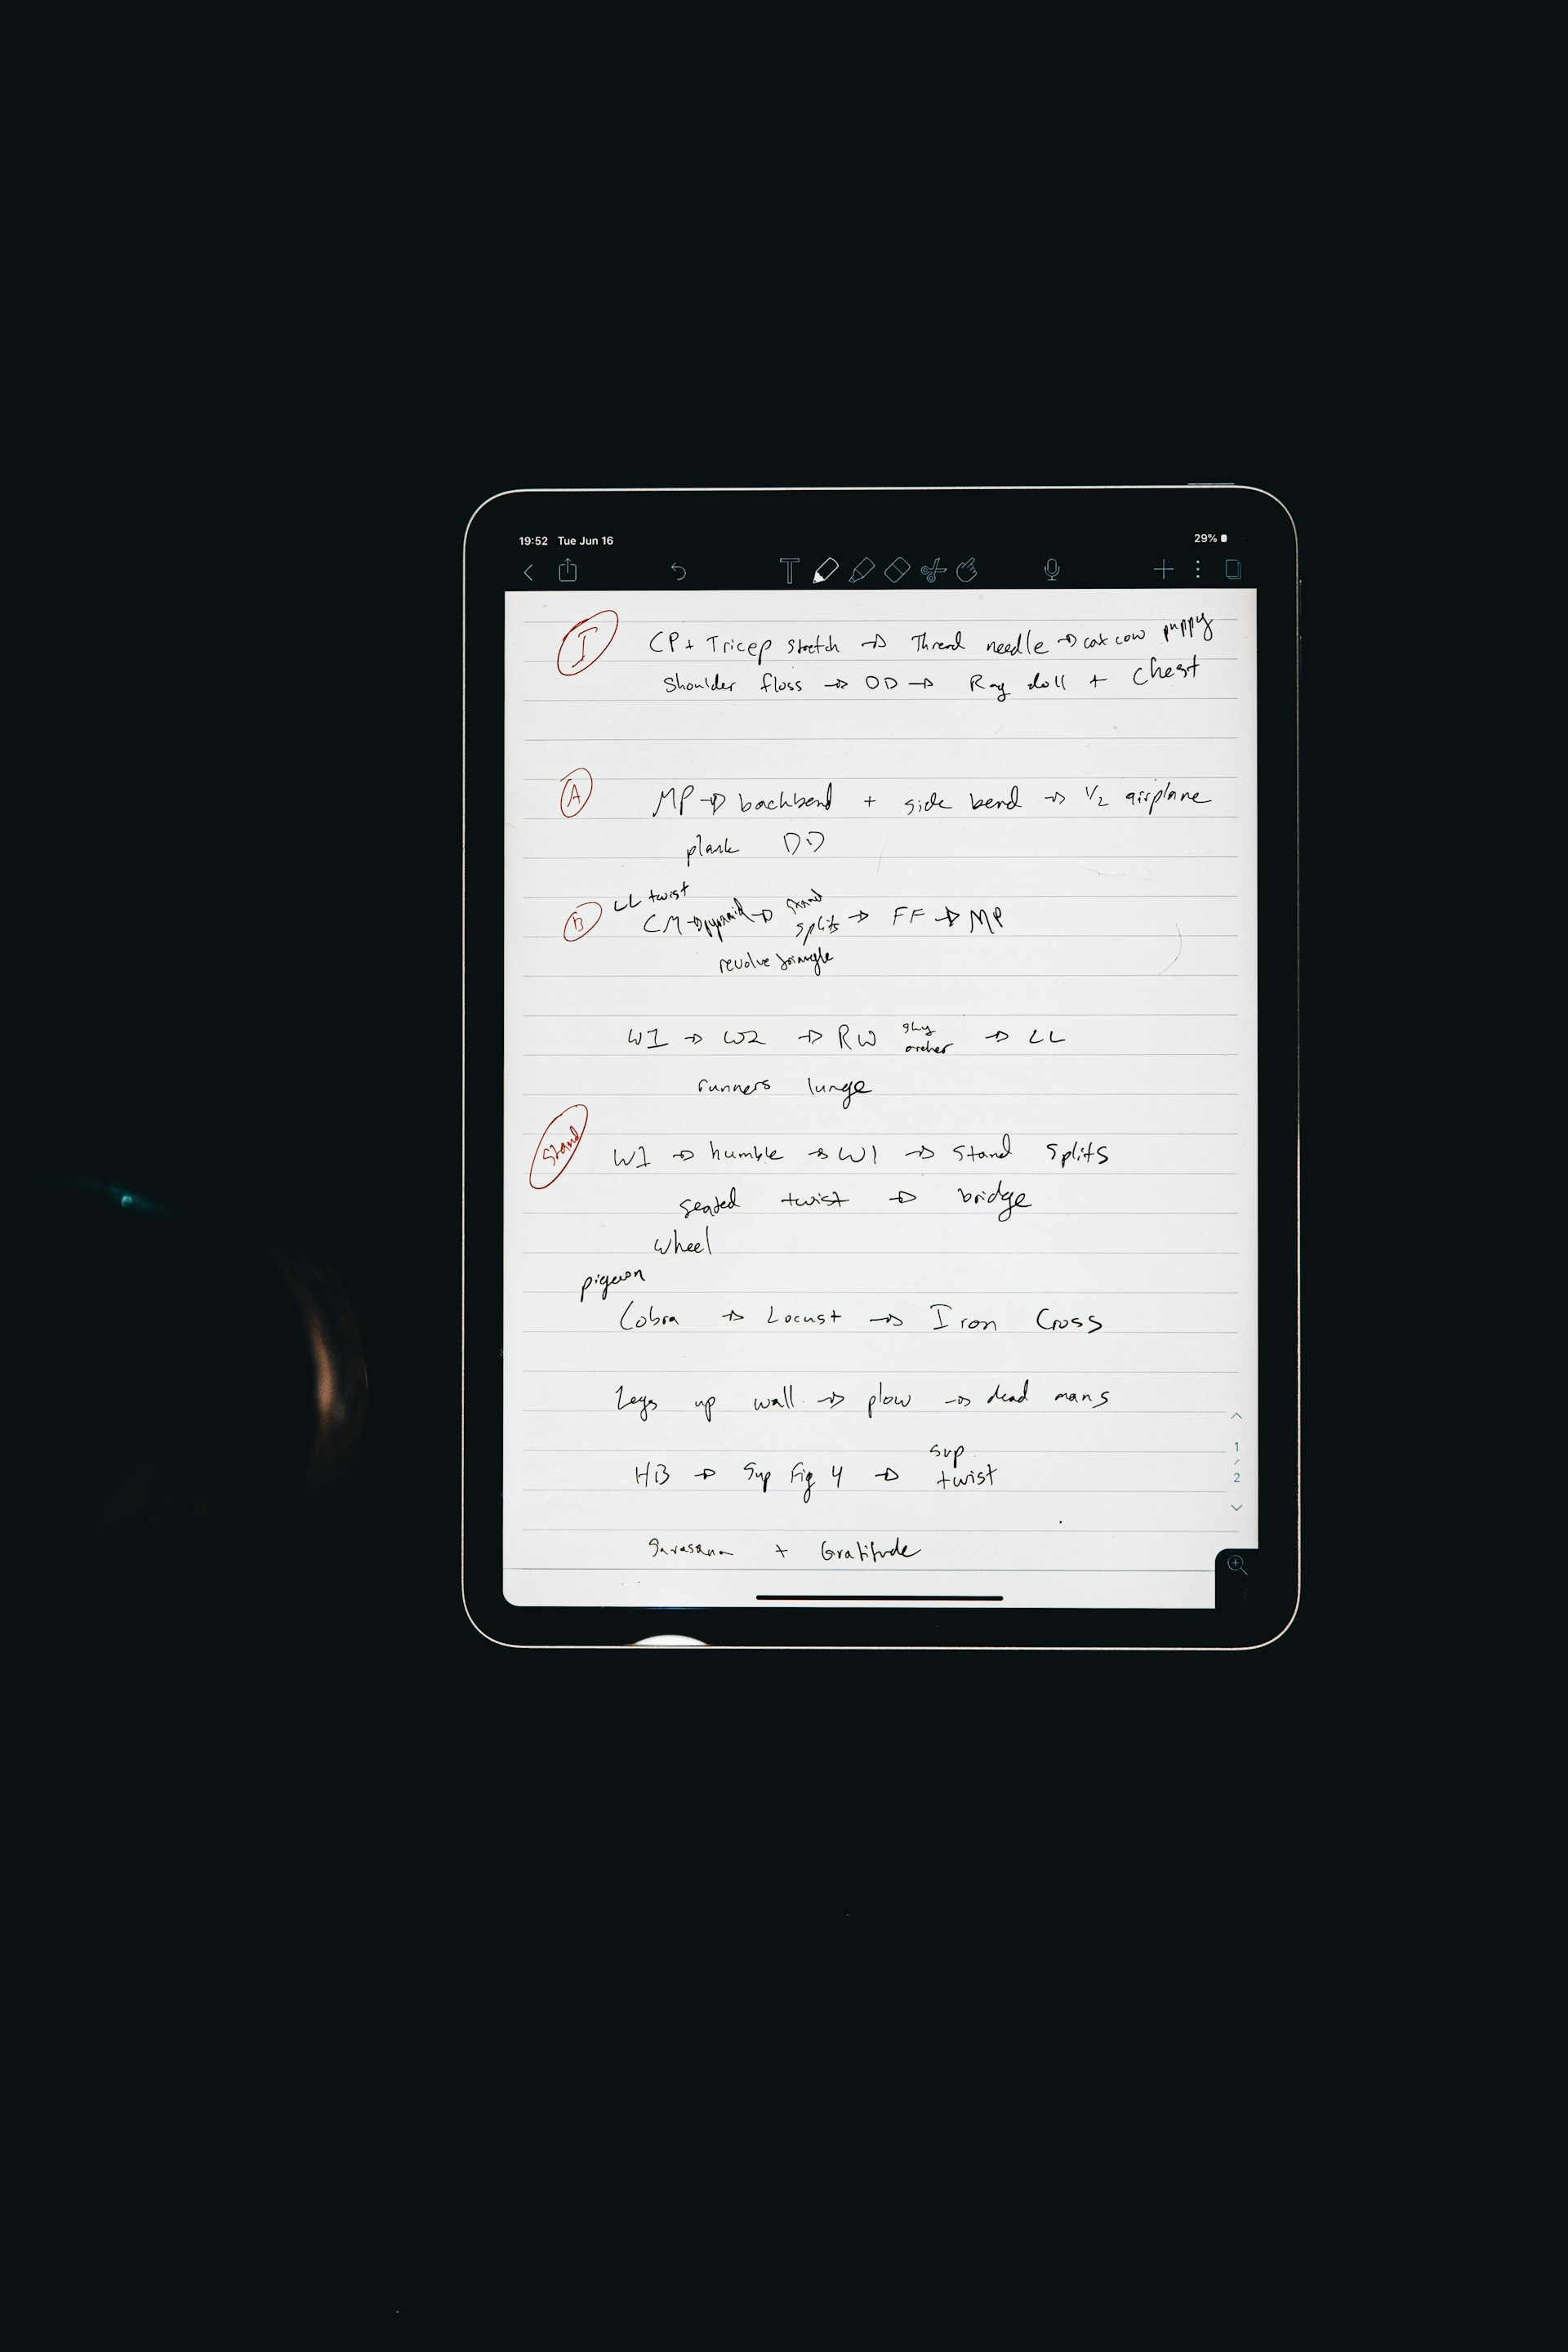 19:52 Tue Jun 16 29%
I CP + Tricep stretch → Thread needle → cat cow puppy
Shoulder floss → DD → Rag doll + Chest
A MP → backbend + side bend → 1/2 airplane
plank DD
LL twist
B CM → pyramid → stand splits → FF → MP
revolve triangle
W1 → W2 → RW sky archer → LL
runners lunge
Stand W1 → humble → W1 → Stand Splits
seated twist → bridge
wheel
pigeon
Cobra → Locust → Iron Cross
Legs up wall → plow → dead mans
sup
HB → Sup Fig 4 → twist
Savasana + Gratitude
1
/
2